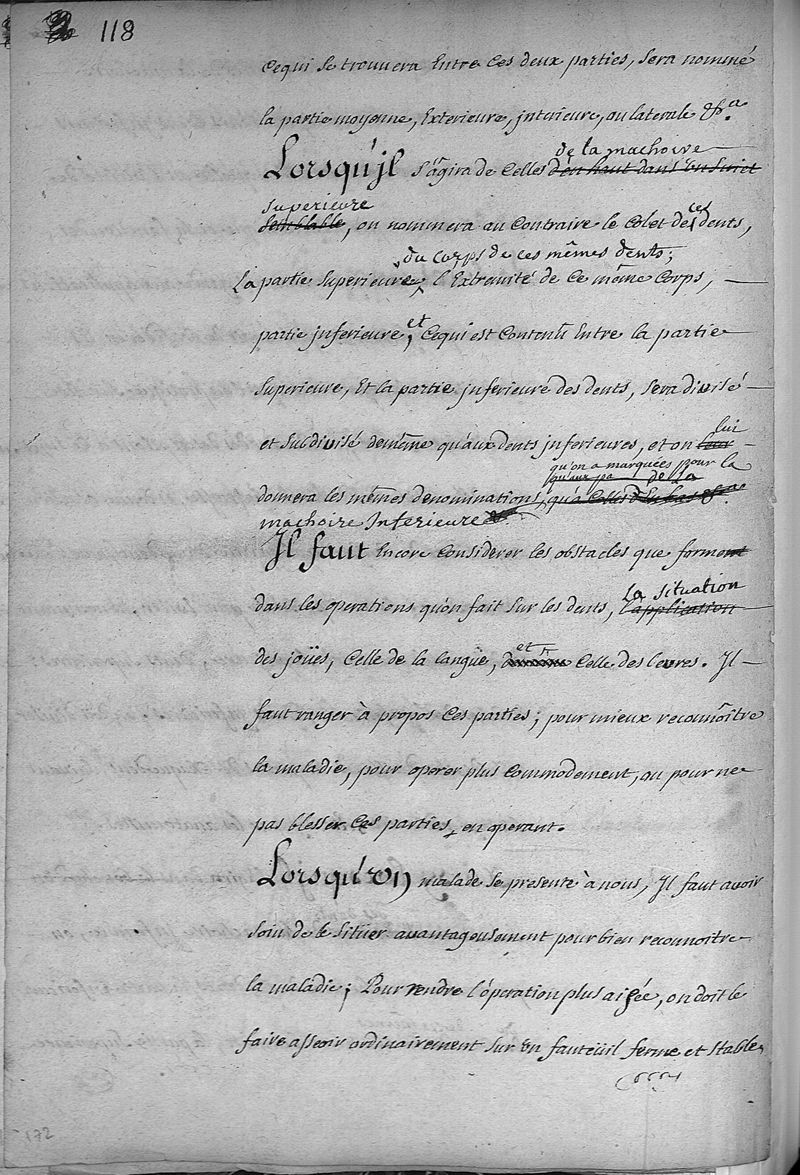 118
Cequi se trouvera Entre Ces deux parties, Sera nommé
la partie moyenne, Exterieure, jnterieure, ou laterale &.a
de la machoire
Lorsqu'jl s'agira de Celles d'en haut dans un Sujet
superieure
Semblable, on nommera au Contraire le Colet des dents,
ces
du corps de ces mêmes dents;
La partie Superieure, l'Extremité de Ce même Corps,
partie jnferieure, et Cequi est Contenû Entre la partie
Superieure, Et la partie jnferieure des dents, Sera divisé
lui
et Subdivisé demême qu'aux dents jnferieures, et on leur
qu'on a marquées pour la
qu'aux pa de la
donnera les mêmes denominations, qu'a Celles du bas &.a
machoire Inferieure
Il faut Encore Considerer les obstacles que forment
La situation
dans les operations qu'on fait Sur les dents, l'application
et
des joües, Celle de la langüe, Celle des levres. Il
faut ranger à propos Ces parties, pour mieux reconnôitre
la maladie, pour operer plus Commodement, ou pour ne
pas blesser Ces parties, en operant.
Lorsqu'un malade se presente à nous, Il faut avoir
soin de le Situer avantageusement pour bien reconnoitre
la maladie; Pour rendre l'óperation plus aisée, on doit le
faire asseoir ordinairement Sur un fauteüil ferme et Stable,
172